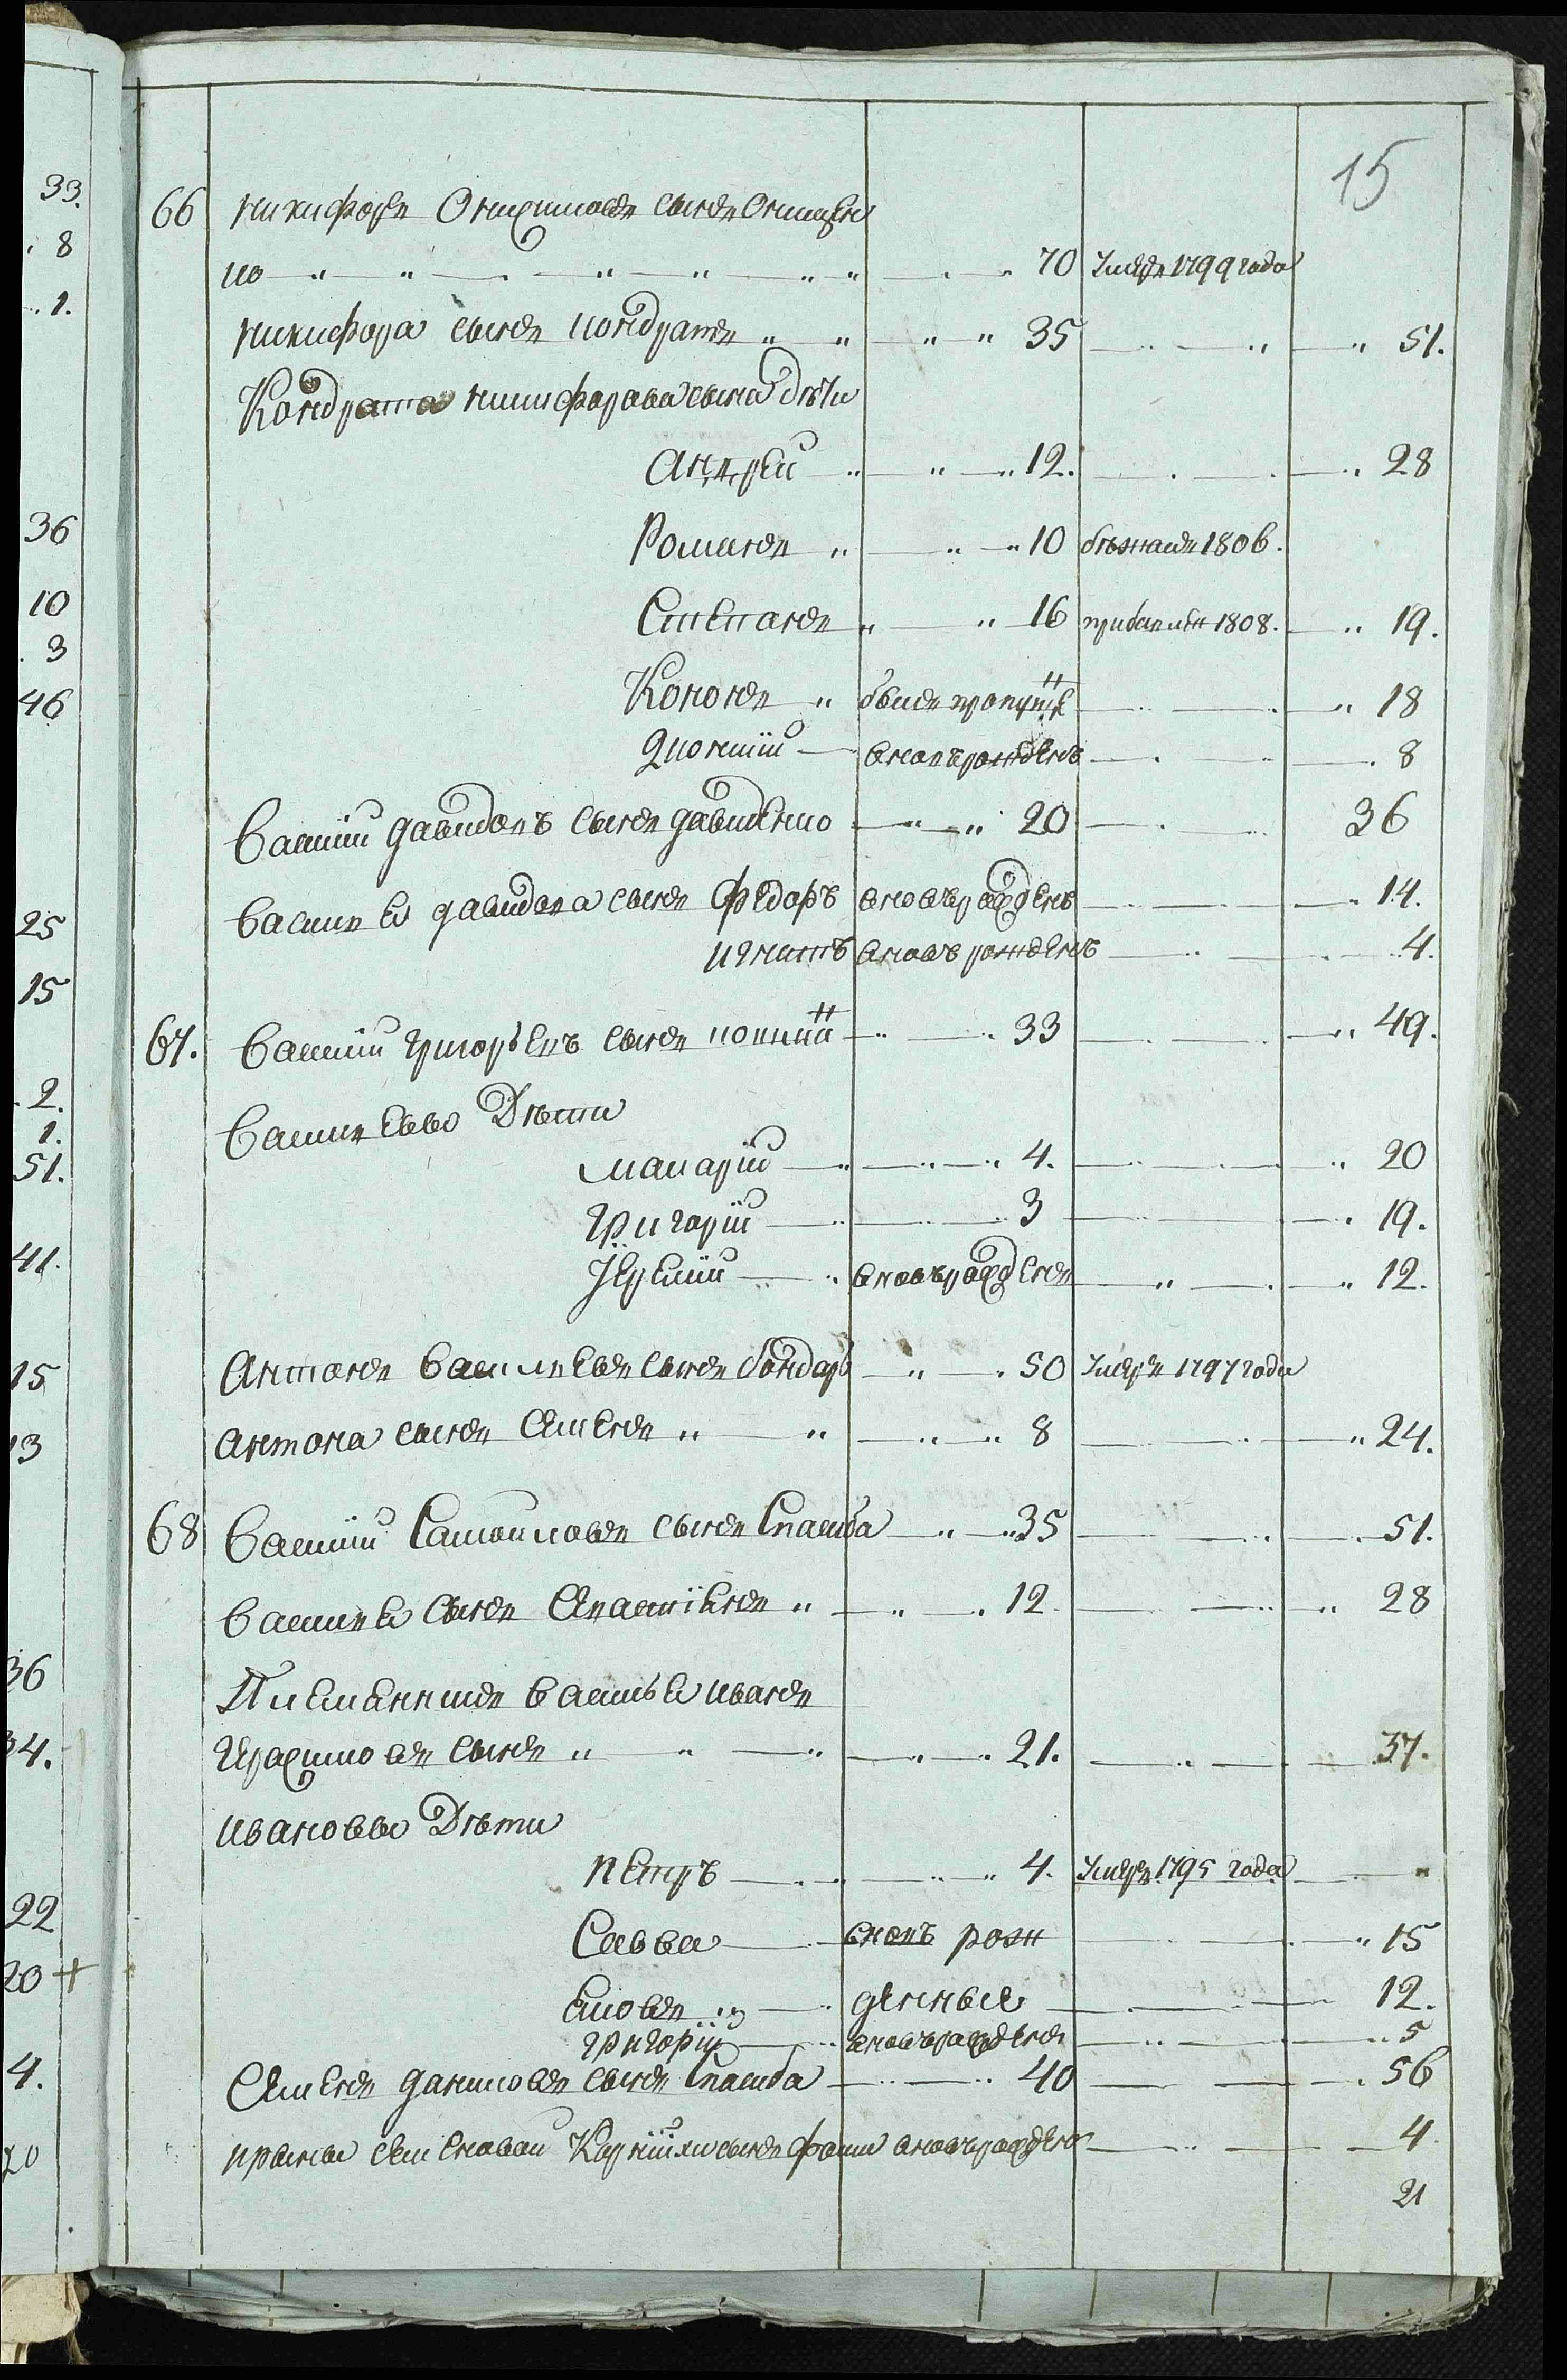 15
66 никифоръ Онисимовъ сынъ Онищен
ко 70 Умеръ 1799 года
никифора сынъ кондратъ 35 51.
Кондрата никифорова сына дѣти
Андрей 12. 28
Романъ 10 бѣжалъ 1806.
Степанъ 16 прибавлен 1808. 19.
Кононъ былъ пропущѣ 18
вновь рожденъ 8
Василий давидовъ сынъ давиденко 20 36
Василия давидова сынъ Федоръ вновь рожденъ 14.
игнатъ вновь рожденъ 4.
67. Василий григорьевъ сынъ 33 49.
Василиевы Дѣти
макарий 4. 20
григорий 3 19.
вновь рожденъ 12.
Антонъ Васильевъ сынъ бондарь 50 Умеръ 1797 года
Антона сынъ Семенъ 8 24.
68 Василий Самойловъ сынъ 35 51.
Василия сынъ 12. 28
Племянникъ Василья иванъ
сынъ 21. 37.
ивановы Дѣти
Петръ 4. Умеръ 1795 года
Савва вновь рож 15
денные 12.
григорий вновь рожденъ 5
Семенъ даниловъ сынъ 40 56
вновь рожденъ 4
21
33.
8
1.
36
10
3
46
25
15
2.
1.
51.
41.
15
13
36
34.
22
20 +
4.
20